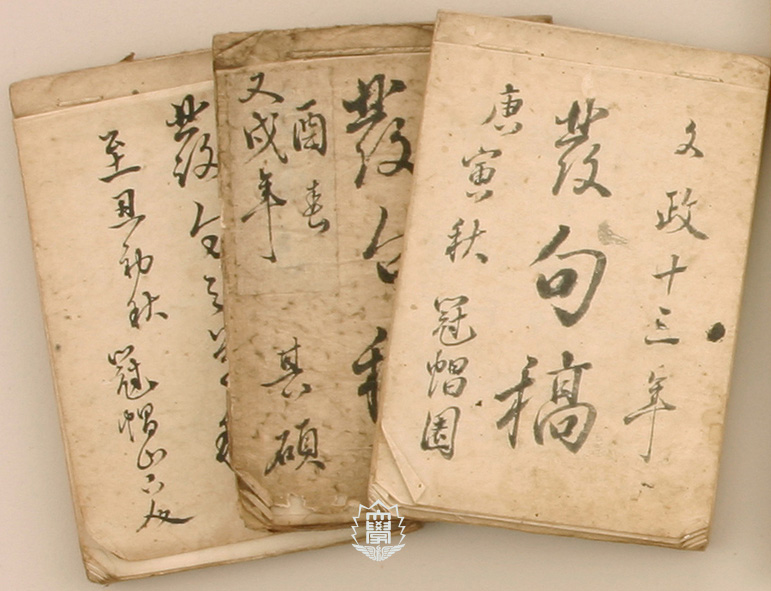 文政十三年
發句稿
庚寅秋 冠帽園
發句稿
酉春 其碩
又戌年
發句
至丑初秋 冠帽山下
學